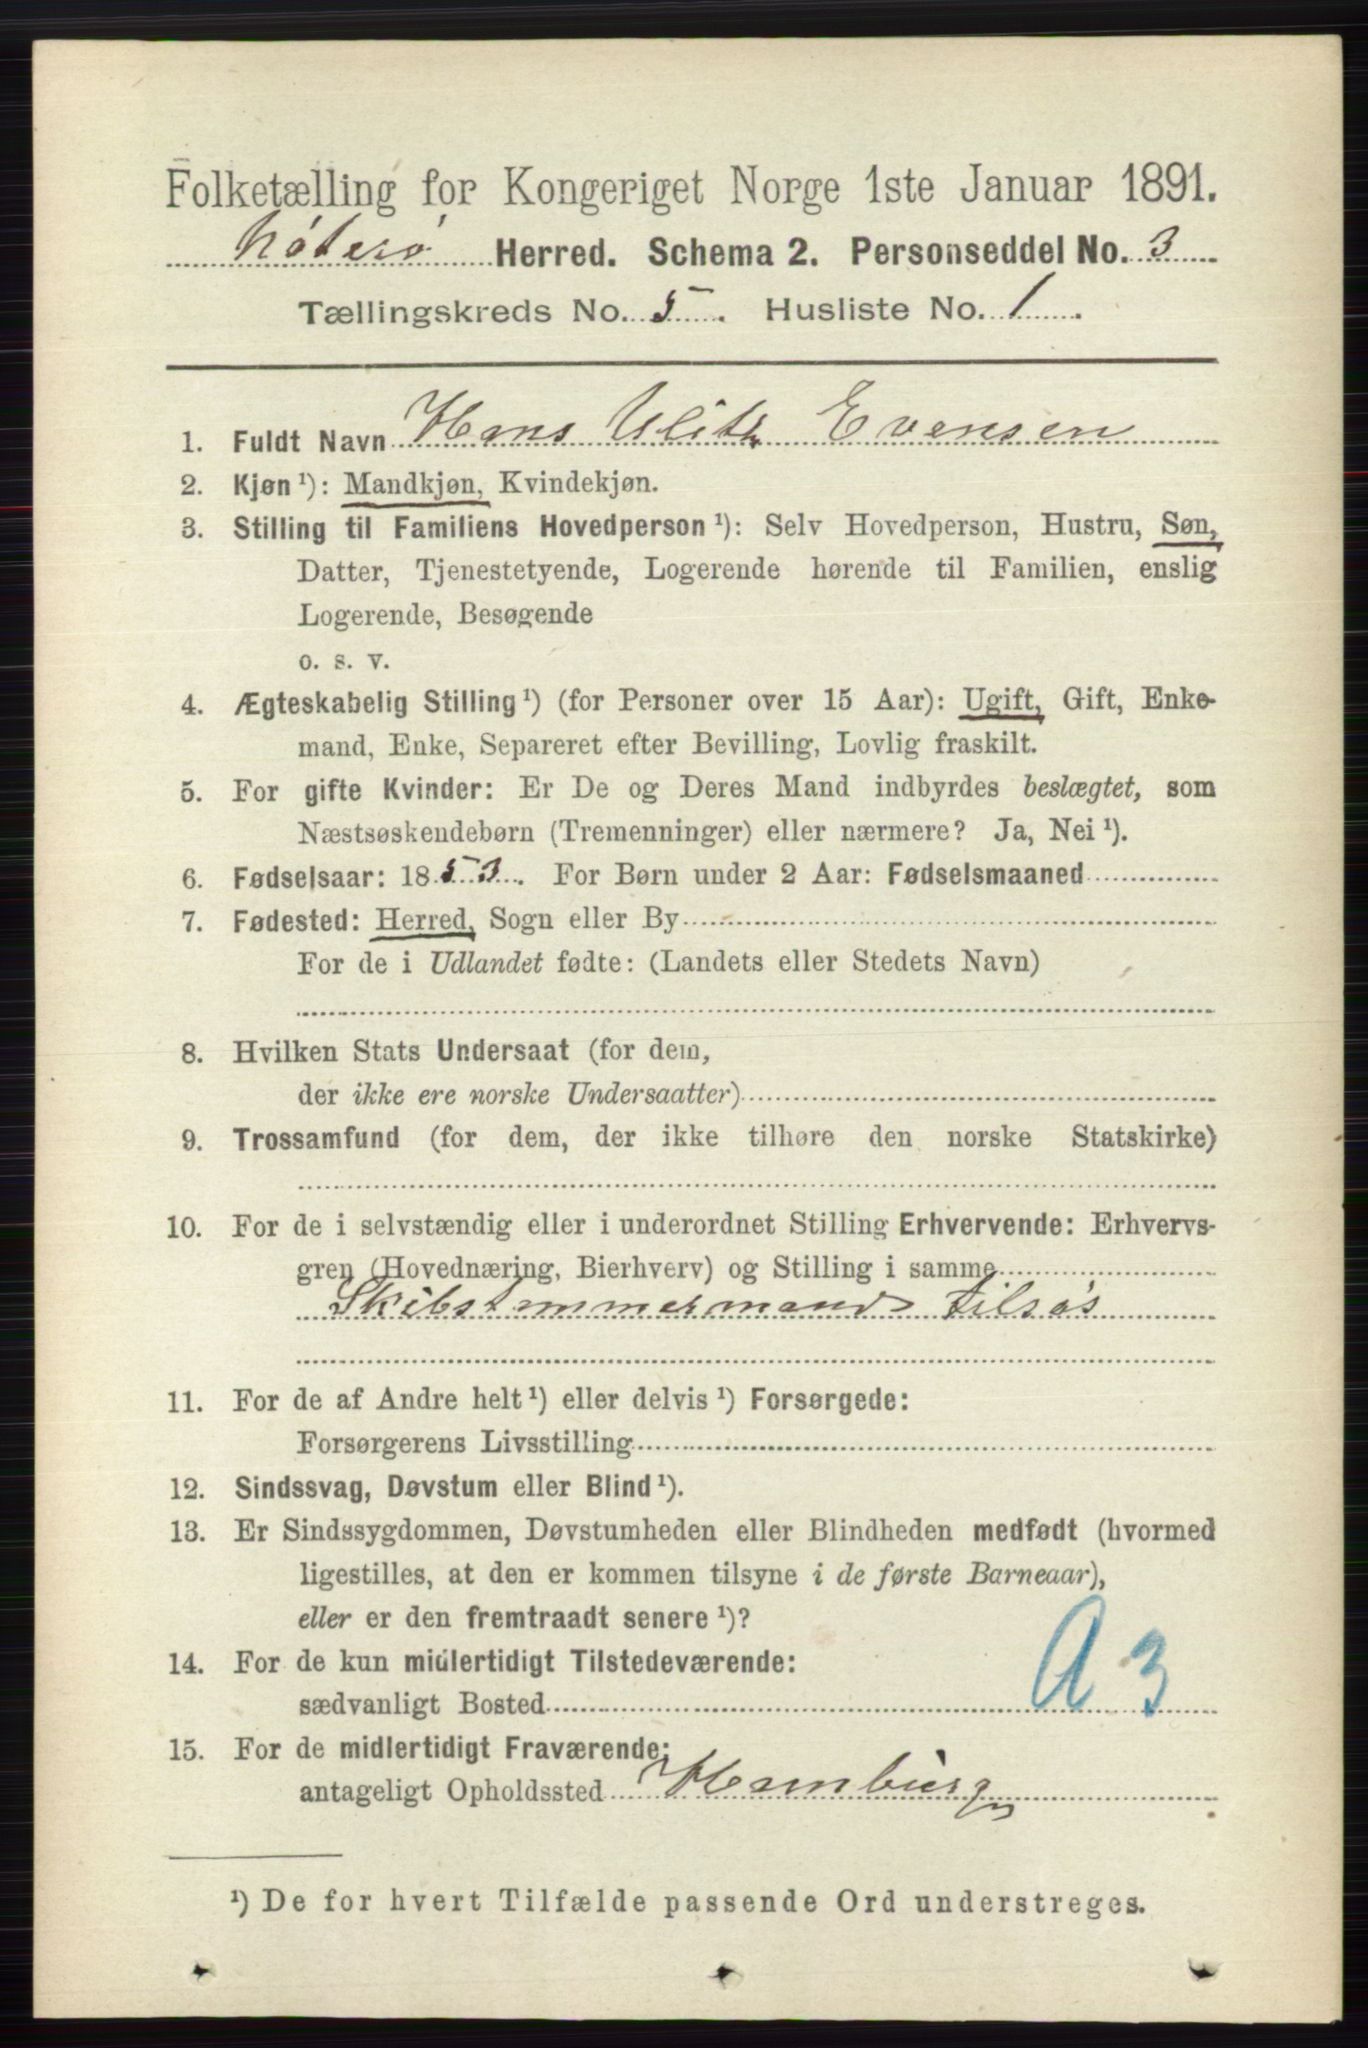 Folketælling for Kongeriget Norge 1ste Januar 1891.
Nøterø Herred. Schema 2. Personseddel No. 3
Tællingskreds No. 5. Husliste No. 1.
1. Fuldt Navn Hans Evensen
2. Kjøn ¹): Mandkjøn, Kvindekjøn.
3. Stilling til Familiens Hovedperson ¹): Selv Hovedperson, Hustru, Søn,
Datter, Tjenestetyende, Logerende hørende til Familien, enslig
Logerende, Besøgende
o. s. v.
4. Ægteskabelig Stilling ¹) (for Personer over 15 Aar): Ugift, Gift, Enke-
mand, Enke, Separeret efter Bevilling, Lovlig fraskilt.
5. For gifte Kvinder: Er De og Deres Mand indbyrdes beslægtet, som
Næstsøskendebørn (Tremenninger) eller nærmere? Ja, Nei ¹).
6. Fødselsaar: 1853. For Børn under 2 Aar: Fødselsmaaned
7. Fødested: Herred, Sogn eller By
For de i Udlandet fødte: (Landets eller Stedets Navn)
8. Hvilken Stats Undersaat (for dem,
der ikke ere norske Undersaatter)
9. Trossamfund (for dem, der ikke tilhøre den norske Statskirke)
10. For de i selvstændig eller i underordnet Stilling Erhvervende: Erhvervs-
gren (Hovednæring, Bierhverv) og Stilling i samme
Skibstømmermand tilsøs
11. For de af Andre helt ¹) eller delvis ¹) Forsørgede:
Forsørgerens Livsstilling
12. Sindssvag, Døvstum eller Blind ¹).
13. Er Sindssygdommen, Døvstumheden eller Blindheden medfødt (hvormed
ligestilles, at den er kommen tilsyne i de første Barneaar),
eller er den fremtraadt senere ¹)?
14. For de kun midlertidigt Tilstedeværende:
sædvanligt Bosted
A 3
15. For de midlertidigt Fraværende:
antageligt Opholdssted Hamburg
¹) De for hvert Tilfælde passende Ord understreges.